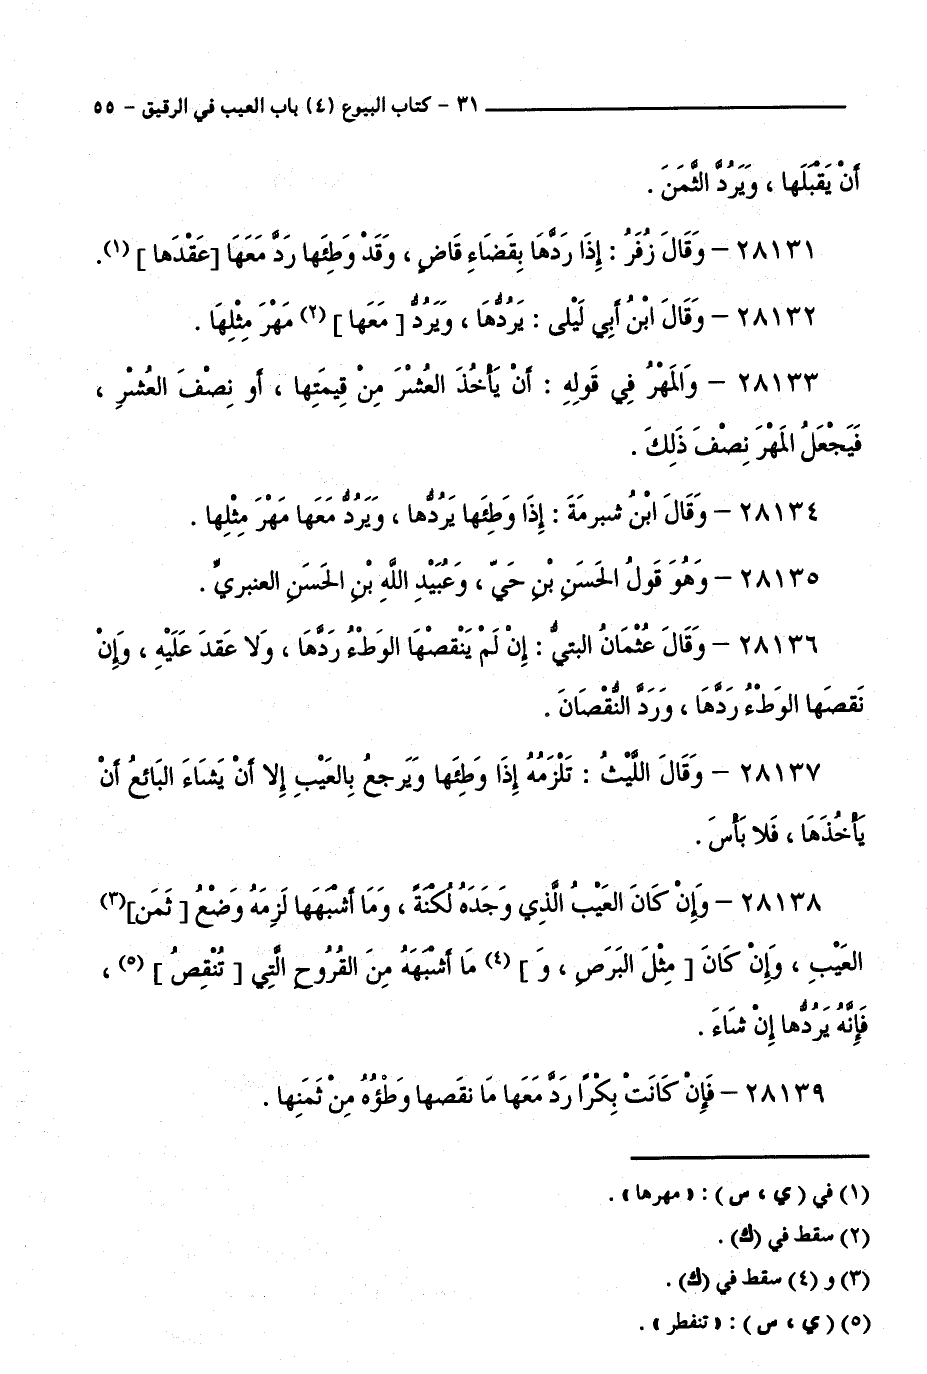 ٣١ - كتاب البيوع (٤) باب العيب في الرقيق - ٥٥
أَنْ يَقْبَلَها ، وَيَرُدُّ الثَّمَنَ .
٢٨١٣١ - وَقَالَ زُفَرُ : إِذَا رَدَّهَا بِقَضَاءِ قَاضٍ ، وَقَدْ وَطِئَها رَدَّ مَعَهَا [عَقْدَها ] (١).
٢٨١٣٢ - وَقَالَ ابْنُ أَبِي لَيْلى : يَرُدُّهَا ، وَيَرُدُّ [ مَعَها ] (٢) مَهْرَ مِثْلِهَا .
٢٨١٣٣ - وَالمَهْرُ فِي قَولِهِ : أَنْ يَأْخُذَ العُشْرَ مِنْ قِيمَتِها ، أَو نِصْفَ العُشْرِ ،
فَيَجْعَلُ المَهْرَ نِصْفَ ذَلِكَ .
٢٨١٣٤ - وَقَالَ ابْنُ شبرمَةَ : إِذَا وَطِئَها يَرُدُّها ، وَيَرُدُّ مَعَها مَهْرَ مِثْلِها .
٢٨١٣٥ - وَهُوَ قَولُ الحَسَنِ بْنِ حَيّ ، وَعُبَيْدِ اللَّهِ بْنِ الحَسَنِ العنبريِّ .
٢٨١٣٦ - وَقَالَ عُثْمَانُ البتيُّ : إِنْ لَمْ يَنْقصْهَا الوَطْءُ رَدَّهَا ، وَلا عَقدَ عَلَيْهِ ، وَإِنْ
نَقصَها الوَطْءُ رَدَّهَا ، وَرَدَّ النُّقْصَانَ .
٢٨١٣٧ - وَقَالَ اللَّيْثُ : تَلْزَمُهُ إِذَا وَطِئَها وَيَرجعُ بِالعَيْبِ إِلا أَنْ يَشَاءَ البَائعُ أَنْ
يَأْخُذَهَا ، فَلا بَأْسَ .
٢٨١٣٨ - وَإِنْ كَانَ العَيْبُ الَّذِي وَجَدَهُ لُكْنَةً ، وَمَا أَشْبَهَها لَزِمَهُ وَضْعُ [ ثَمَن](٣)
العَيْبِ ، وَإِنْ كَانَ [ مِثْلَ البَرَصِ ، وَ ] (٤) مَا أَشْبَهَهُ مِنَ القُرُوحِ الَّتِي [ تُنْقِصُ ] (٥) ،
فَإِنَّهُ يَرُدُّها إِنْ شَاءَ .
٢٨١٣٩ - فَإِنْ كَانَتْ بِكْرًا رَدَّ مَعَها مَا نقَصها وَطْؤُهُ مِنْ ثَمَنِها .
(١) في ( ي ، س ) : « مهرها » .
(٢) سقط في (ك) .
(٣) و (٤) سقط في (ك) .
(٥) ( ي ، س ) : « تنفطر » .